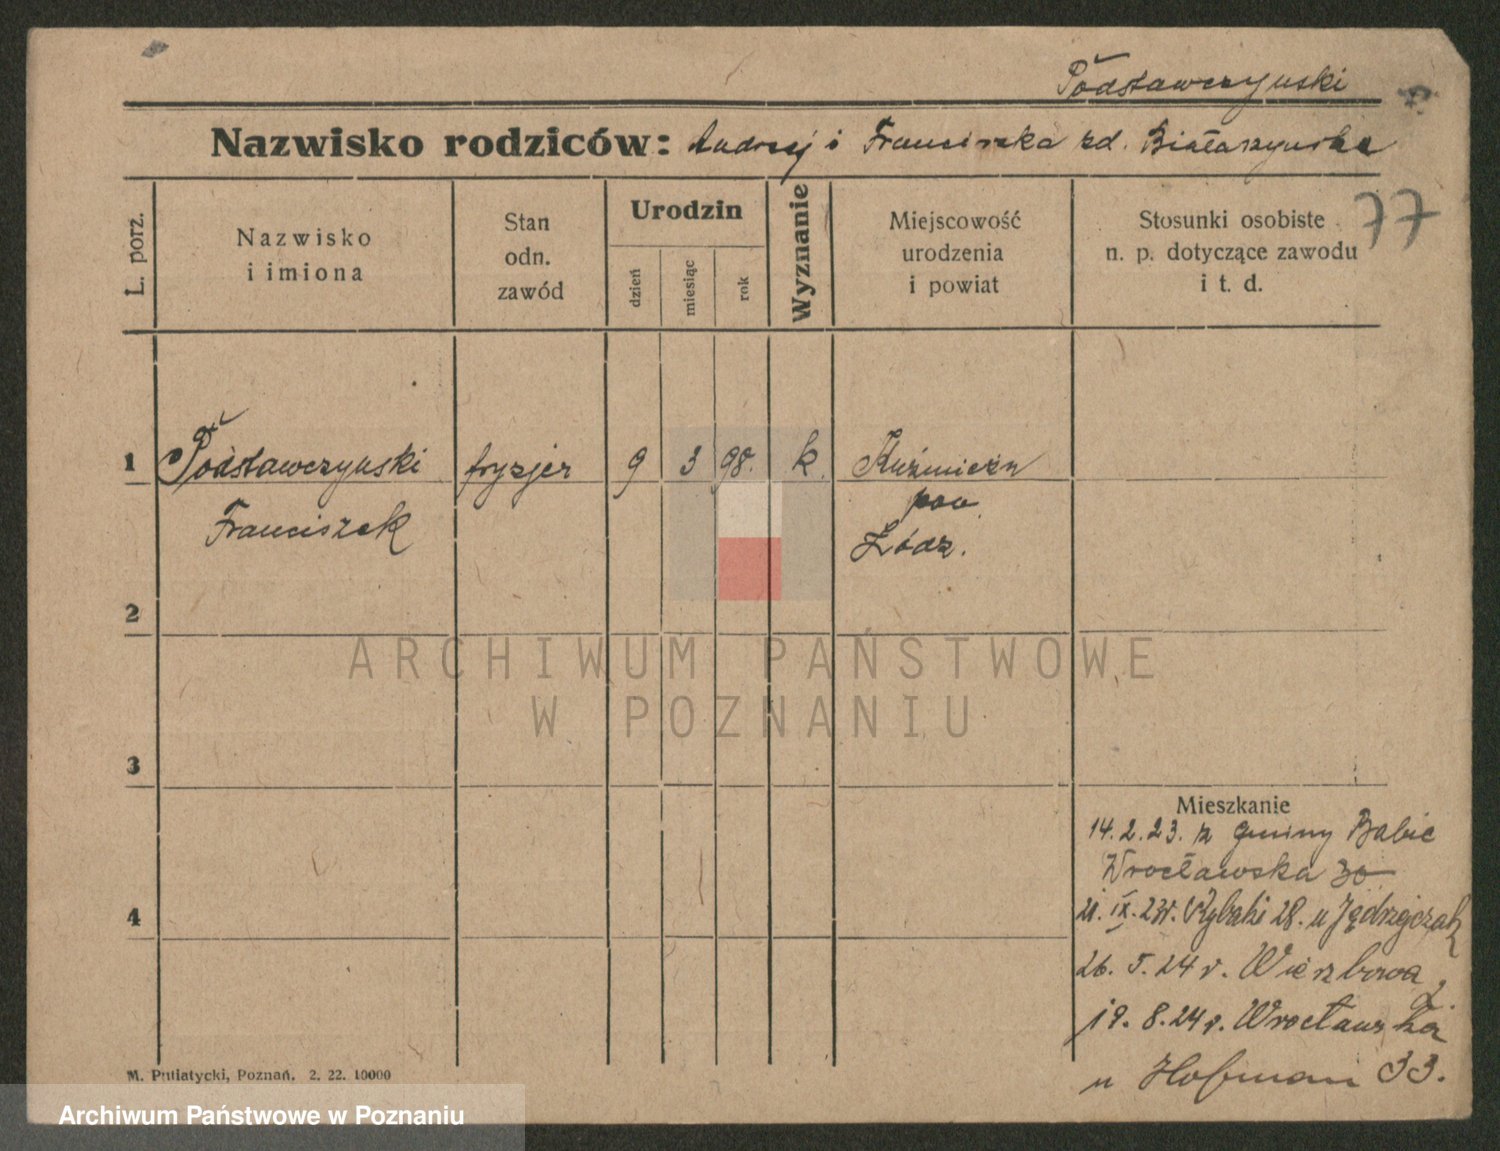 Podstawczynski
Nazwisko rodziców: Andrzej i Franciszka zd. Białaszynska
77
L. porz.
Nazwisko
i imiona
Stan
odn.
zawód
Urodzin
dzień
miesiąc
rok
Wyznanie
Miejscowość
urodzenia
i powiat
Stosunki osobiste
n. p. dotyczące zawodu
i t. d.
1 Podstawczynski fryzjer 9 3 98. k.
Franciszek
pow.
Łódz.
2
3
4
Mieszkanie
14.2.23. z gminy Babic
Wrocławska 30
21. IX. 23r. Rybaki 28. u Jędrzejczak
26. 5. 24 r. Wierzbowa 2.
19. 8. 24 r. Wrocławska
u Hofman 33.
M. Putiatycki, Poznań. 2. 22. 10000
ARCHIWUM PAŃSTWOWE
W POZNANIU
Archiwum Państwowe w Poznaniu